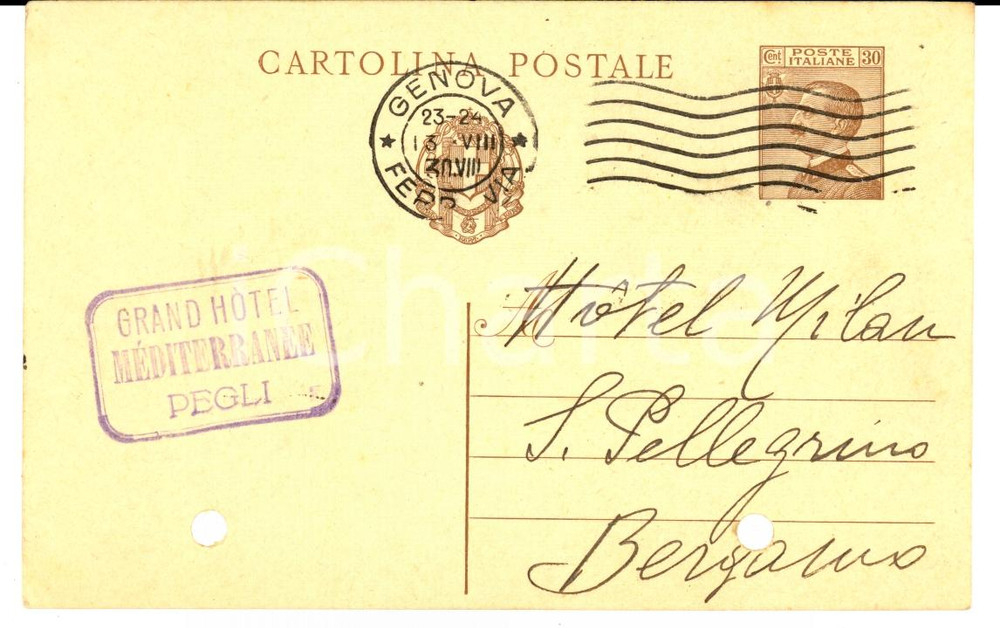 CARTOLINA POSTALE
Cent. POSTE ITALIANE 30
GENOVA
23-24
13 VIII
30.VIII
FERROVIA
GRAND HÔTEL
MÉDITERRANÉE
PEGLI
Hôtel Milan
S. Pellegrino
Bergamo
Charta